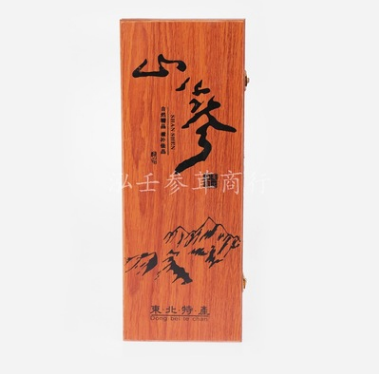 山參
SHAN SHEN
弘壬参茸商行
東·北·特·產
Dong bei te chan